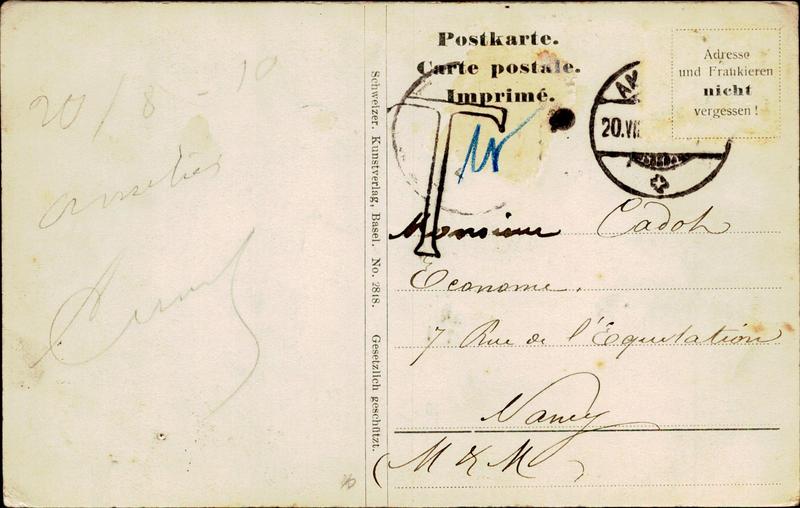 20/8 - 10
Postkarte.
Carte postale.
Imprimé.
T
10
20.VII
Adresse
und Frankieren
nicht
vergessen!
Schweizer. Kunstverlag, Basel. No. 2818. Gesetzlich geschützt.
Monsieur Cadot
Économe.
7 Rue de l'Equitation
Nancy
(M & M)